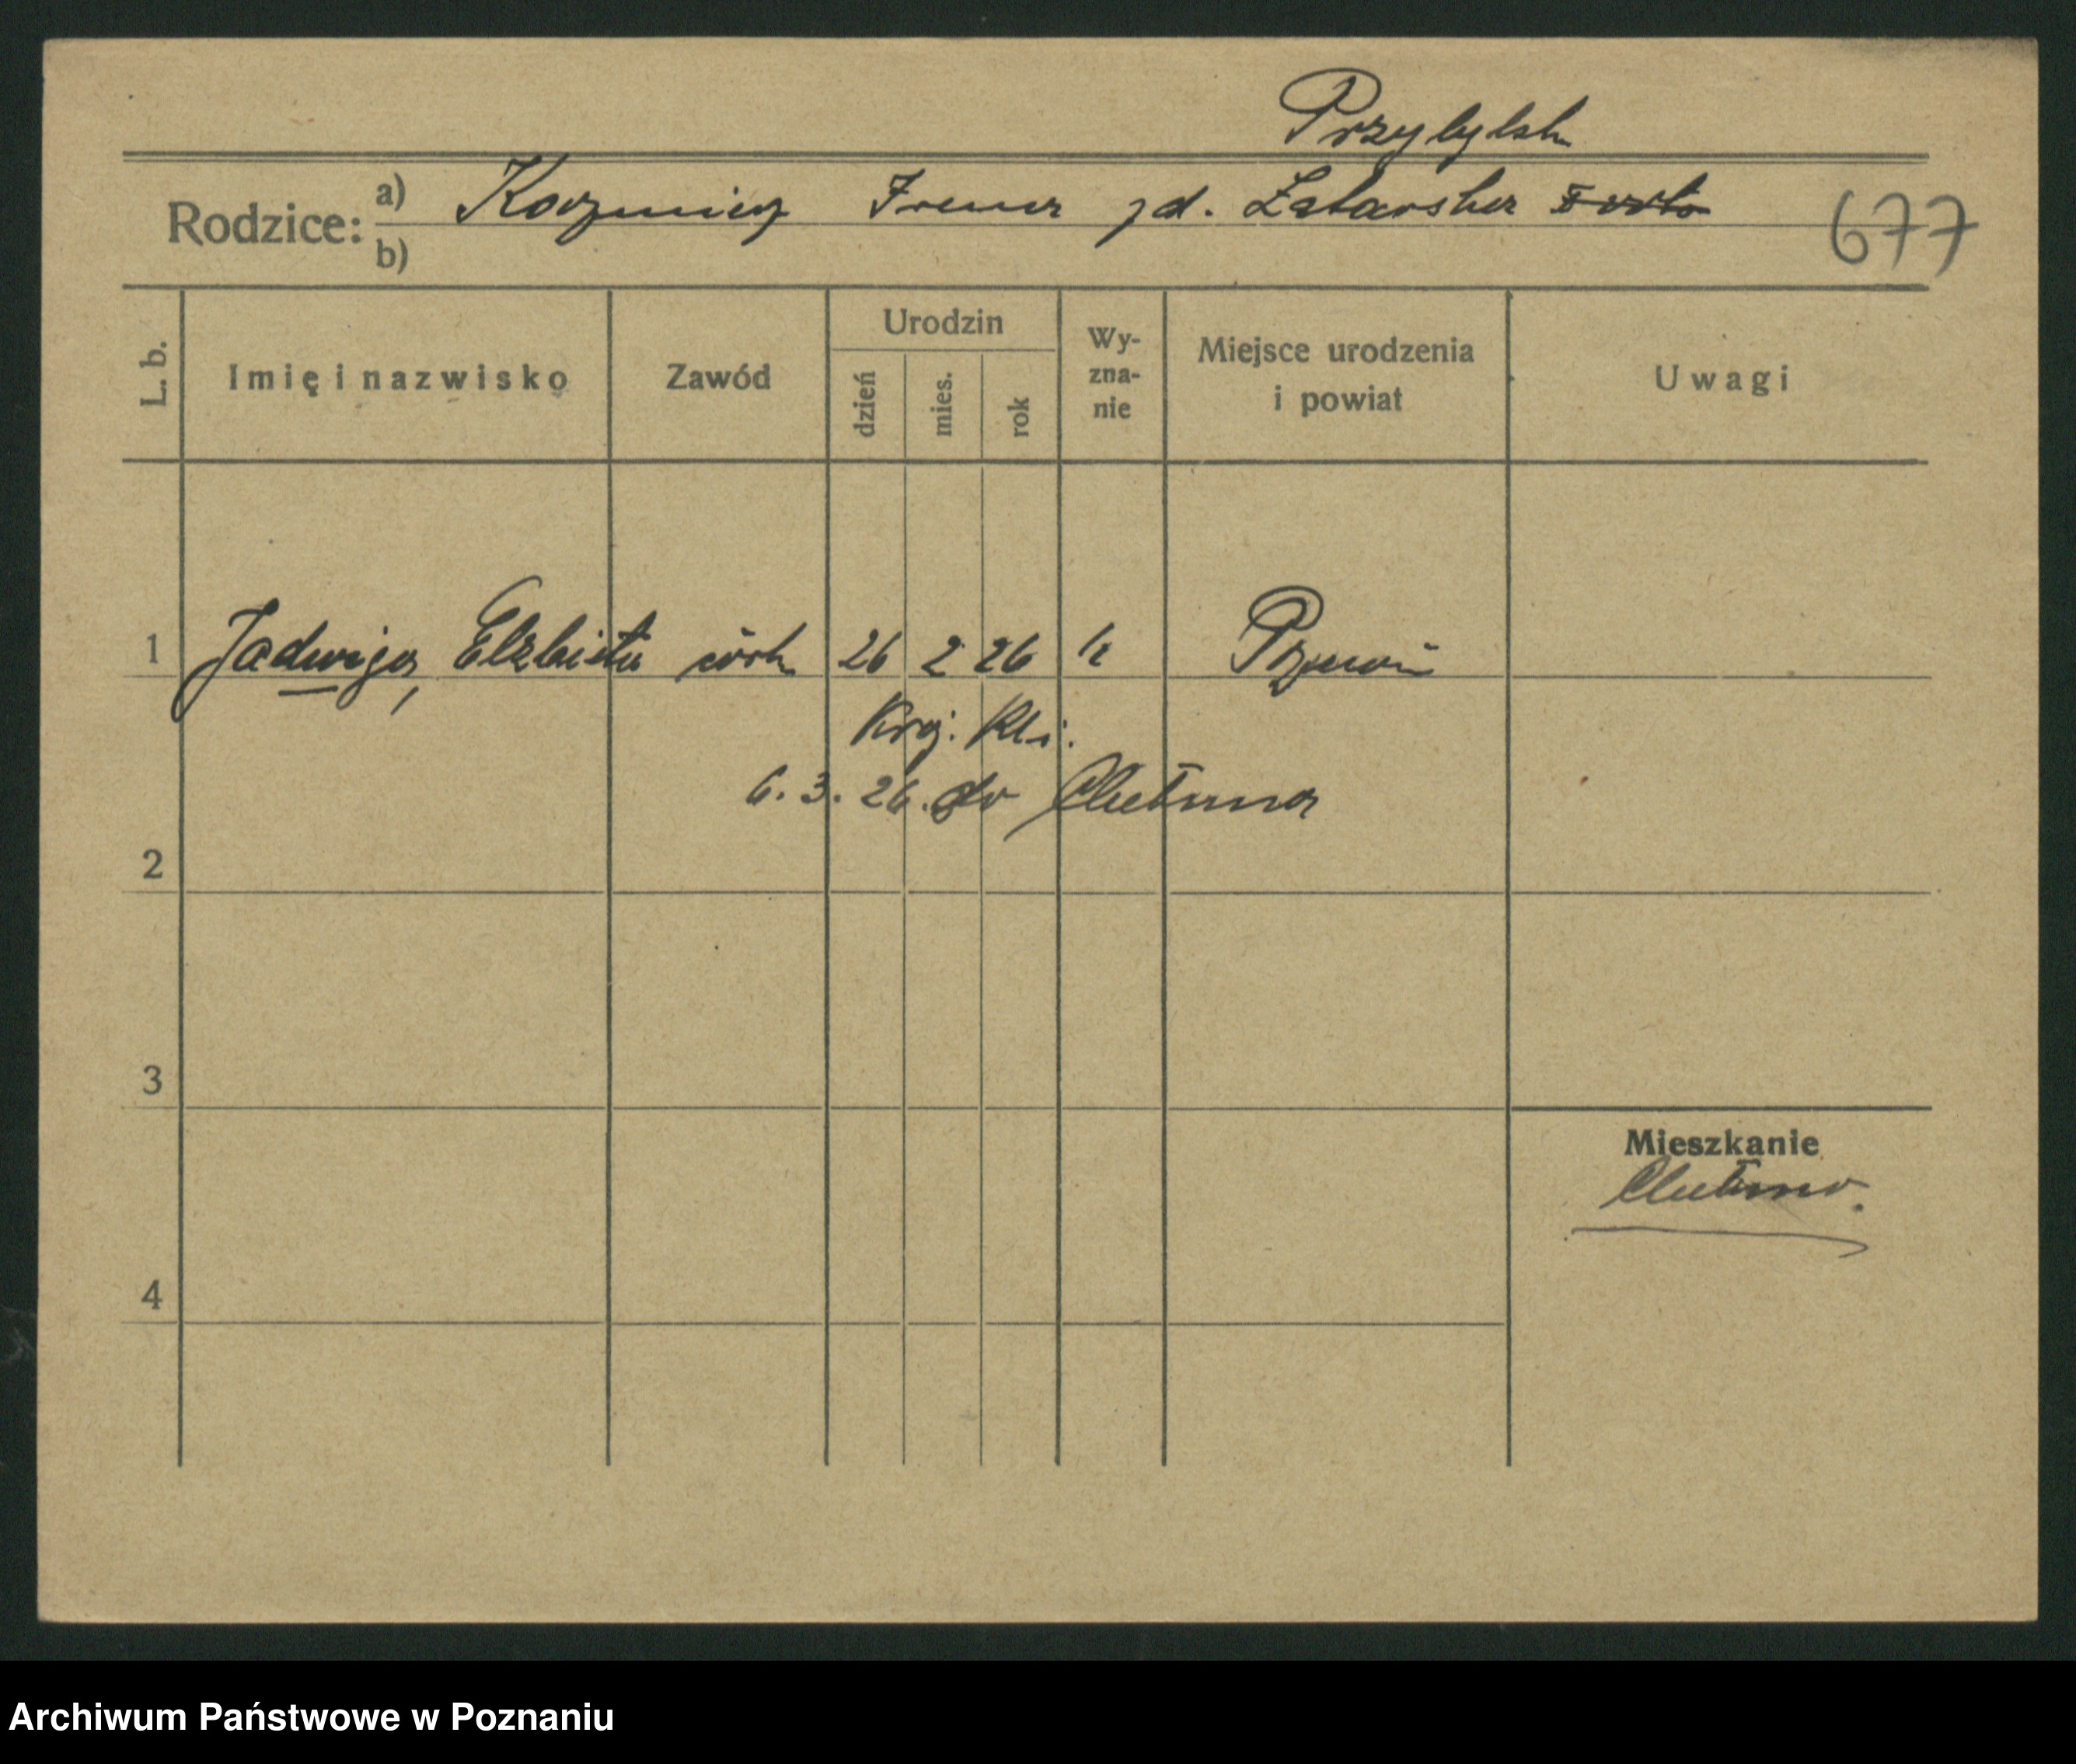 Przybylska
Rodzice: a) Kazimierz Irena zd.
b)
677
L. b. Imię i nazwisko Zawód Urodzin dzień mies. rok Wy-zna-nie Miejsce urodzenia i powiat Uwagi
1 Jadwiga, Elżbieta córka 26 2 26 k Poznań
Kraj. Kli.
6. 3. 26. do Chełmna
2
3
Mieszkanie
Chełmno.
4
Archiwum Państwowe w Poznaniu